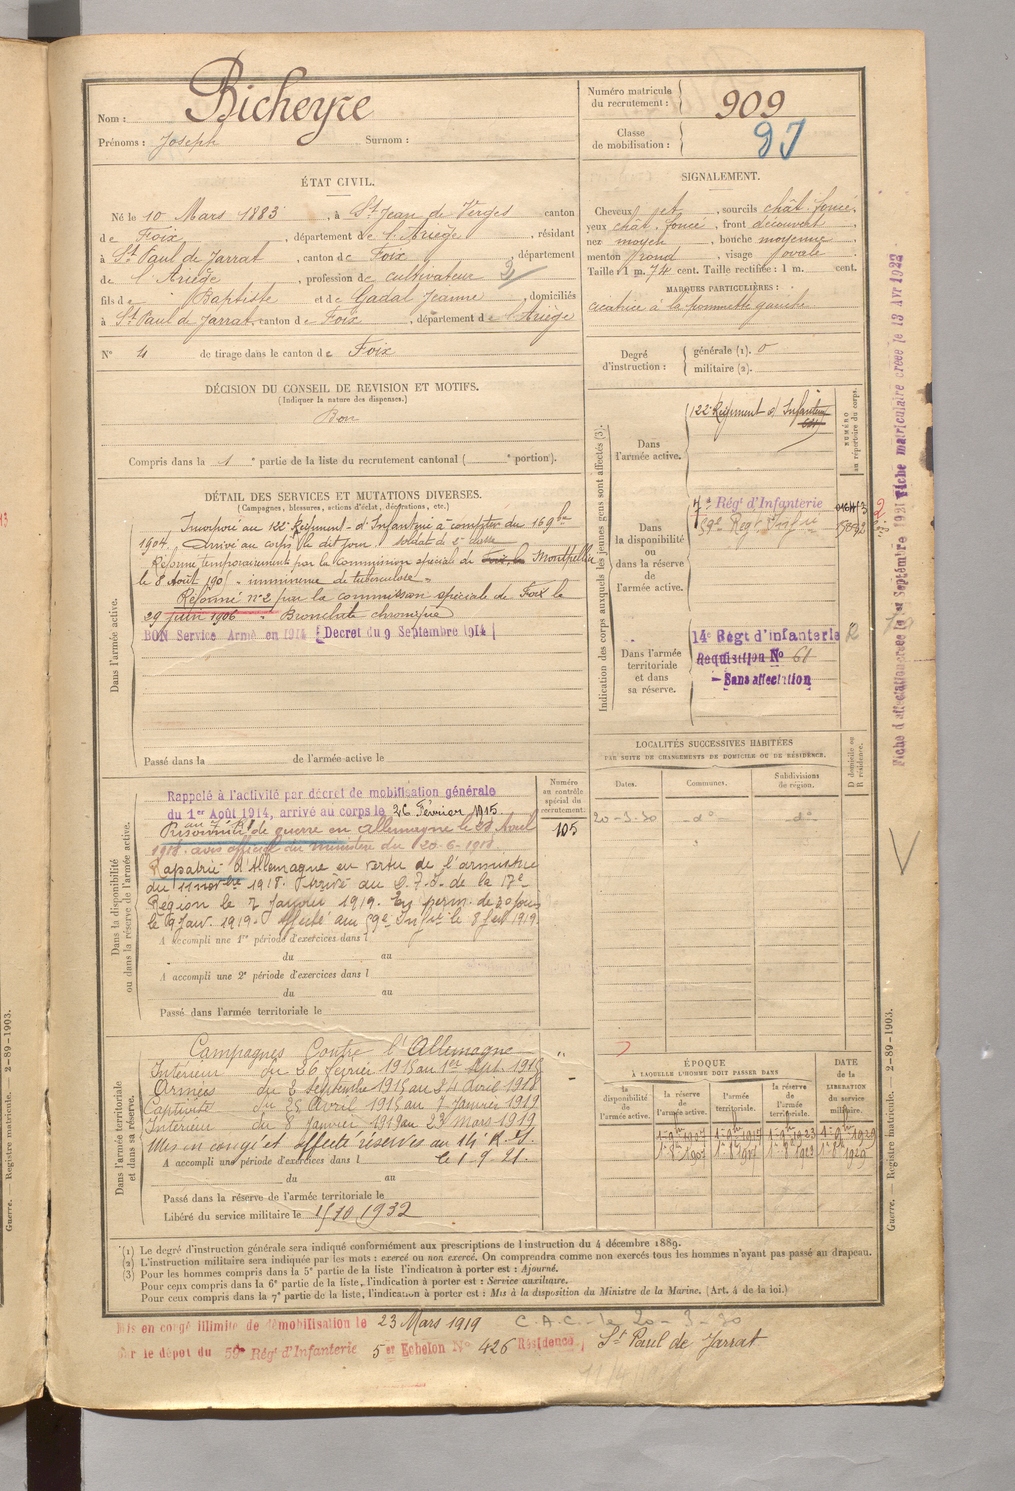 Nom : Bicheyre
Prénoms : Joseph Surnom :
Numéro matricule du recrutement : 909
Classe de mobilisation :
ÉTAT CIVIL.
Né le 10 Mars 1883, à St Jean de Verges canton
de Foix, département de l'Ariège, résidant
à St Paul de Jarrat, canton de Foix, département
de l'Ariège, profession de cultivateur
fils de Baptiste et de Gadal Jeanne, domiciliés
à St Paul de Jarrat, canton de Foix, département de l'Ariège
N° 4 de tirage dans le canton de Foix
SIGNALEMENT.
Cheveux et, sourcils chât. foncé,
yeux chât. foncé, front découvert,
nez moyen, bouche moyenne,
menton rond, visage ovale.
Taille : 1 m. 74 cent. Taille rectifiée : 1 m. cent.
MARQUES PARTICULIÈRES :
cicatrice à la pommette gauche
Degré d'instruction : générale (1). 0
militaire (2).
DÉCISION DU CONSEIL DE REVISION ET MOTIFS.
(Indiquer la nature des dispenses.)
Bon
Compris dans la 1e partie de la liste du recrutement cantonal ( e portion).
DÉTAIL DES SERVICES ET MUTATIONS DIVERSES.
(Campagnes, blessures, actions d'éclat, décorations, etc.)
Dans l'armée active.
Incorporé au 122e Régiment d'Infanterie à compter du 16 9bre
1904. Arrivé au corps le dit jour. soldat de 2e classe
Réformé temporairement par la commission spéciale de Montpellier
le 8 Août 190 imminence de tuberculose
Réformé n°2 par la commission spéciale de Foix le
29 juin 1906 Bronchite chronique
BON Service Armé en 1914 (Decret du 9 Septembre 1914)
Passé dans la de l'armée active le
Indication des corps auxquels les jeunes gens sont affectés (3).
NUMÉRO au répertoire du corps.
Dans l'armée active. 122e Régiment d'Infanterie
Dans la disponibilité ou dans la réserve de l'armée active.
7e Régt d'Infanterie
59e Regt Infie
Dans l'armée territoriale et dans sa réserve.
14e Régt d'infanterie
Requisition No 61
Sans affectation
LOCALITÉS SUCCESSIVES HABITÉES
PAR SUITE DE CHANGEMENTS DE DOMICILE OU DE RÉSIDENCE.
Dates. Communes. Subdivisions de région. D domicile ou R résidence.
20-3-30 - do - - do -
Dans la disponibilité ou dans la réserve de l'armée active.
Numéro au contrôle spécial du recrutement.
105
Rappelé à l'activité par décret de mobilisation générale
du 1er Août 1914, arrivé au corps le 26 Février 1915.
Prisonnier de guerre en Allemagne le 24 Avril
1918. avis officiel du ministère du 20-6-1918.
Rapatrié d'Allemagne en vertu de l'armistice
du 11 novbre 1918. Arrivé au D.F.I. de la 17e
Région le 7 Janvier 1919. En perm. de 30 jours
le 9 Janv. 1919. Affecté au 59e Infie le 8 fev 1919.
A accompli une 1re période d'exercices dans l
du au
A accompli une 2e période d'exercices dans l
du au
Passé dans l'armée territoriale le
Dans l'armée territoriale et dans sa réserve.
Campagnes Contre l'Allemagne
Intérieur du 26 février 1915 au 1er Sept. 1915
Armées du 2 septembre 1915 au 24 Avril 1918
Captivité du 25 Avril 1915 au 7 Janvier 1919
Intérieur du 8 Janvier 1919 au 23 Mars 1919
Mis en congé et affecté réserves au 14e R.I.
A accompli une période d'exercices dans l le 1-9-21.
du au
Passé dans la réserve de l'armée territoriale le
Libéré du service militaire le 15/10/1932
ÉPOQUE
À LAQUELLE L'HOMME DOIT PASSER DANS
la disponibilité de l'armée active. la réserve de l'armée active. l'armée territoriale. la réserve de l'armée territoriale.
DATE de la LIBERATION DU SERVICE militaire.
(1) Le degré d'instruction générale sera indiqué conformément aux prescriptions de l'instruction du 4 décembre 1889.
(2) L'instruction militaire sera indiquée par les mots : exercé ou non exercé. On comprendra comme non exercés tous les hommes n'ayant pas passé au drapeau.
(3) Pour les hommes compris dans la 5e partie de la liste l'indication à porter est : Ajourné.
Pour ceux compris dans la 6e partie de la liste, l'indication à porter est : Service auxiliaire.
Pour ceux compris dans la 7e partie de la liste, l'indication à porter est : Mis à la disposition du Ministre de la Marine. (Art. 4 de la loi.)
Mis en congé illimité de démobilisation le 23 Mars 1919 C.A.C. le 20-3-30
sur le dépôt du 59e Régt d'Infanterie 5er Echelon No 426 Résidence, St Paul de Jarrat
Fiche matriculaire créée le 13 Avr 1922
Guerre. — Registre matricule. — 2-89-1903.
Guerre. — Registre matricule. — 2-89-1903.